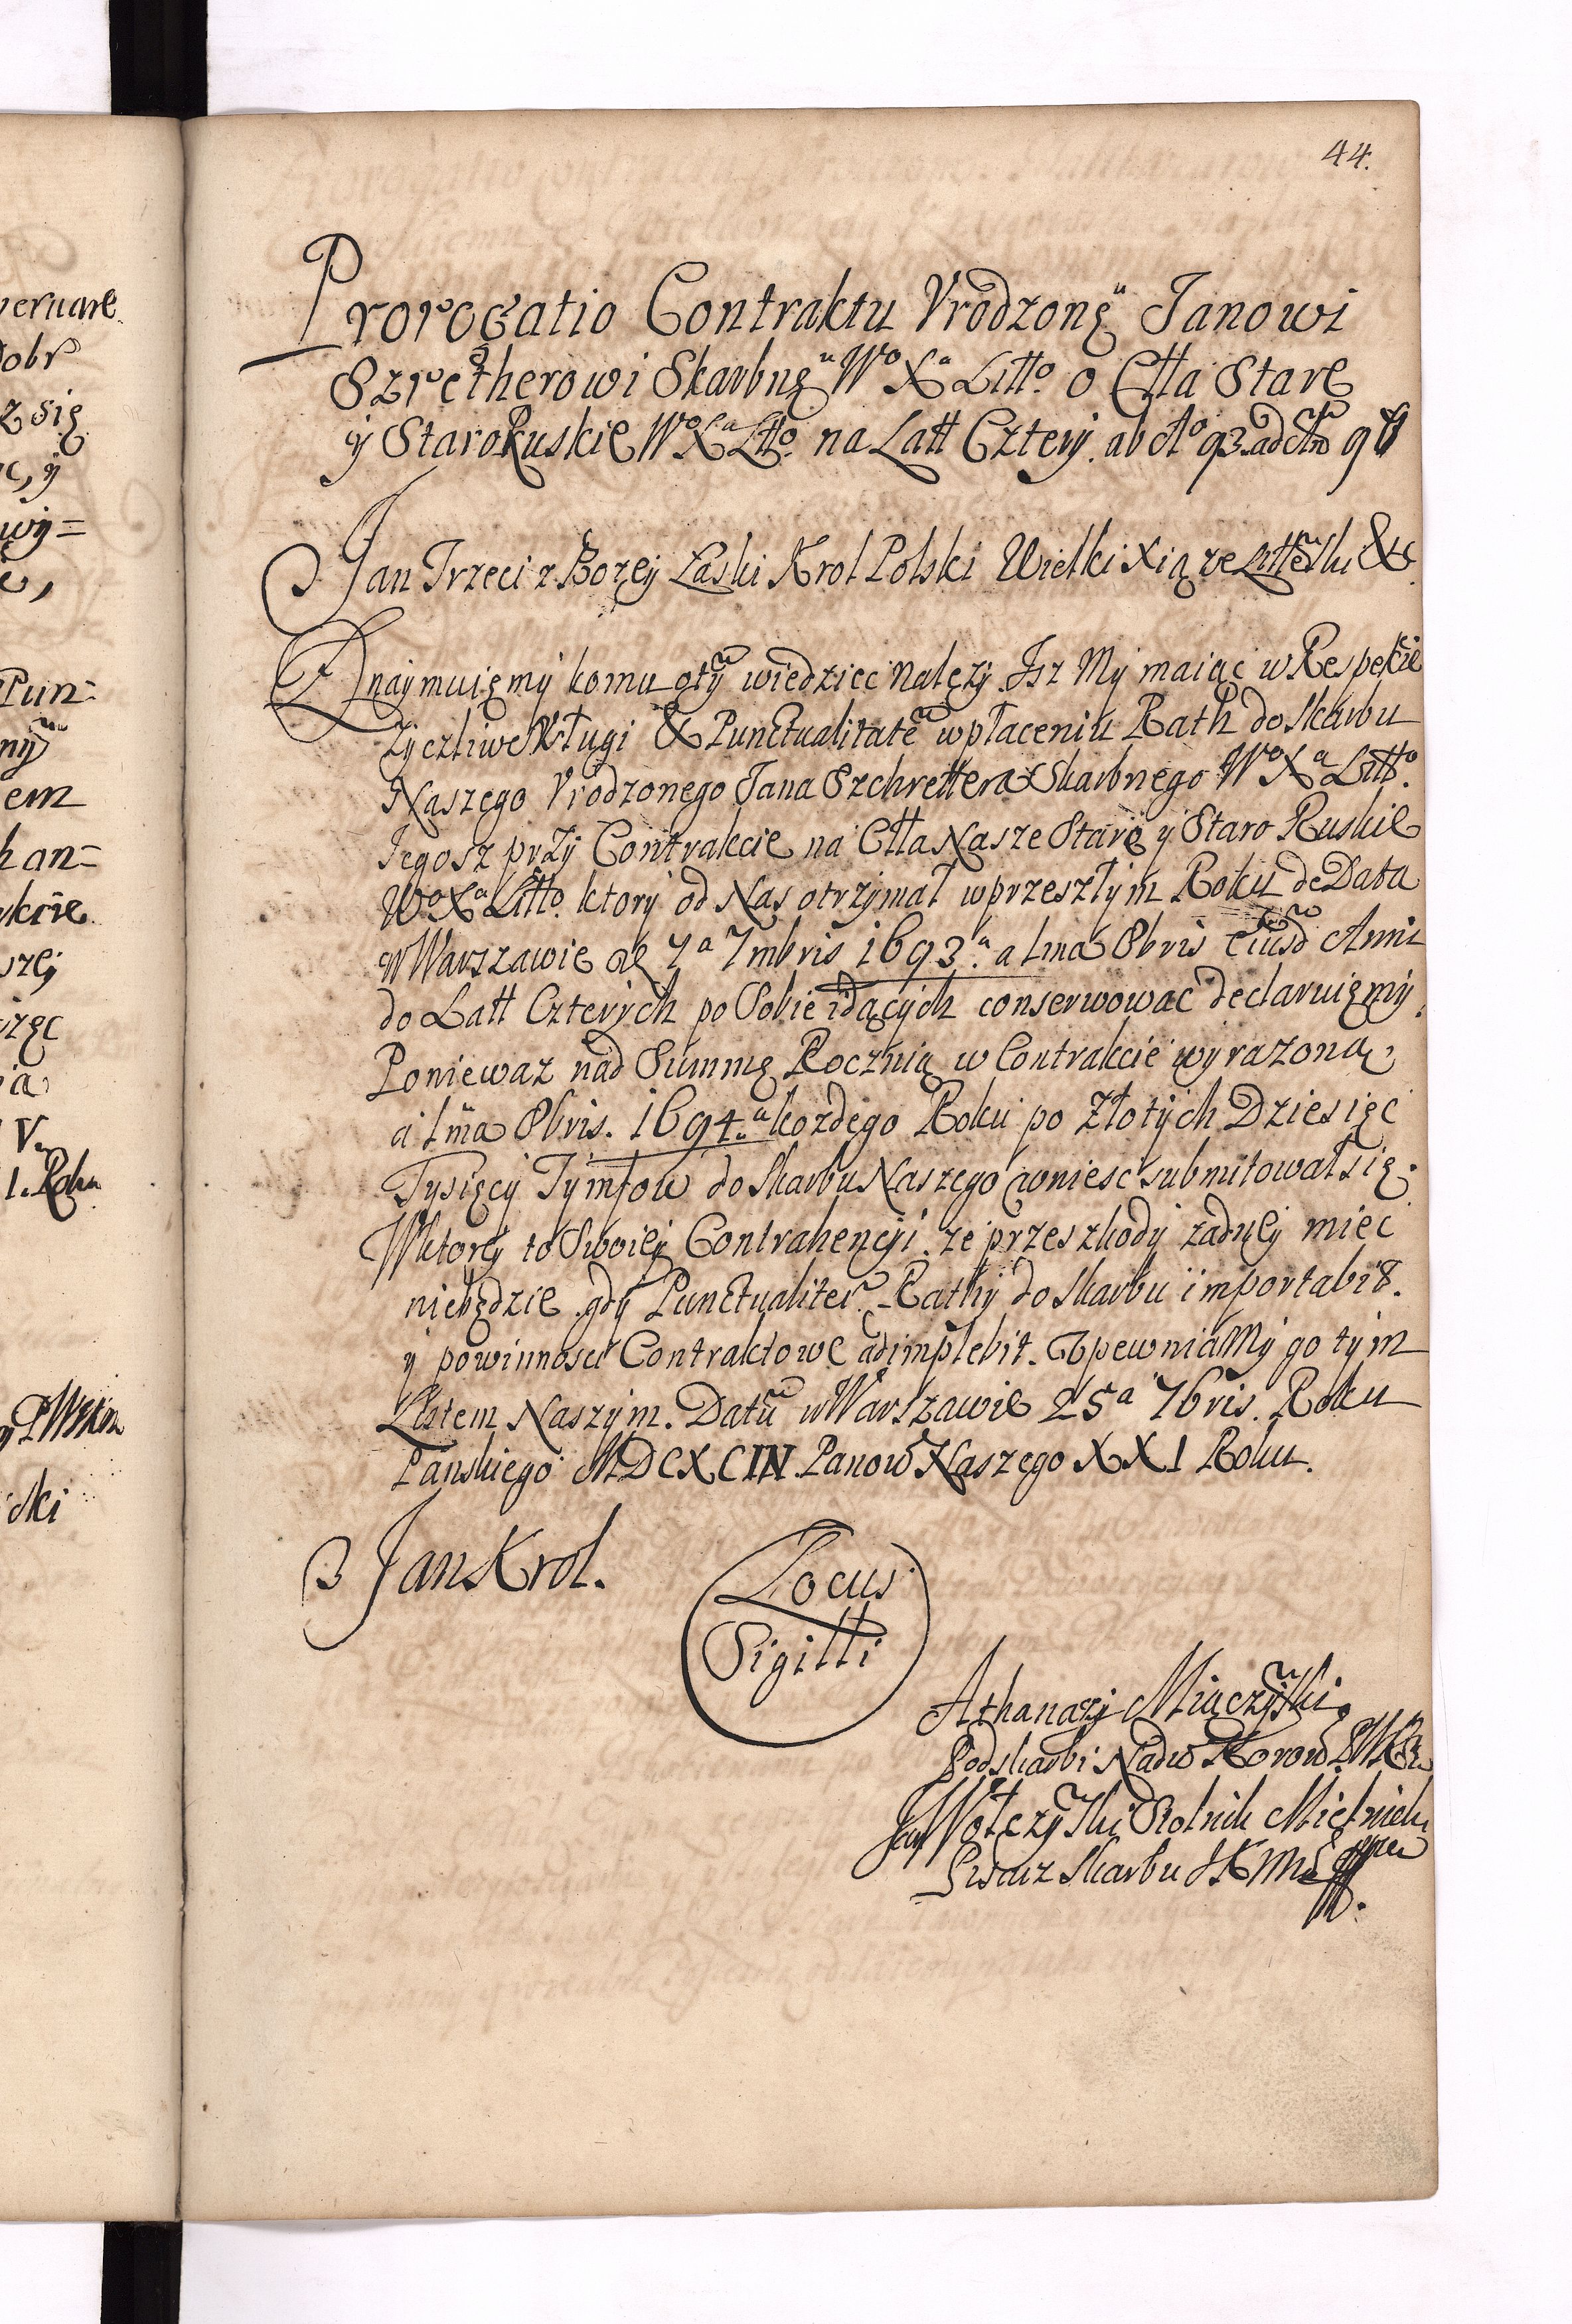 vernare
Dobr
z się
ac, ÿ
wÿ=
ie,
Pun=
nÿ
em
han=
kcie
szeÿ
rzęc
ia
V.
1. Roku
cki
44.
Prorogatio Contraktu Vrodzonęᵘ Janowi
Szretherowi Skarbnęᵘ Wº Xª Littº. o Cłła Stare
ÿ StaroRuskie Wº Xª Lttº. na Latt Czterÿ. ab Aº 93. ad Añ 98
Jan Trzeci z Bozeÿ Łaski Krol Polski Wielki Xiąze Litteski &
Znaÿmuięmÿ komu otÿ wiedziec Nalezÿ. Isz Mÿ maiąc w Respekcie
Zÿczliwe Vsługi & Punctualitatē w płaceniu Rath do Skarbu
Naszego Vrodzonego Jana Szchrettera Skarbnego Wº Xª Littº.
Jegosz przÿ Contrakcie na Cłła Nasze Stare ÿ Staro Ruskie
Wº Xª Littº. ktorÿ od Nas otrzÿmał w przeszłÿm Roku de Data
w Warszawie de 7ª 7mbris 1693.ª a 1ma 8bris Eiusd Anni
do Latt Czterÿch po Sobie idącÿch conserwowac declaruięmÿ.
Poniewaz nad Summę Rocznią w Contrakcie wÿrazoną
a 1ma 8bris. 1694.ª kozdego Roku po Złotÿch Dziesięc
Tysięcÿ Tÿmfow do Skarbu Naszego wniesc submitował się.
W ktoreÿ to Swoieÿ Contrahencÿi. ze przeszkodÿ zadneÿ miec
niebędzie. gdÿ Punctualiter. Rathÿ do Skarbu importabit.
ÿ powinnosci Contraktowe adimplebit. Vpewniamÿ go tÿm
Listem Naszÿm. Datū w Warszawie 25ª 7bris. Roku
Panskiego MDCXCIV Panow Naszego XXI Roku.
Jan Krol.
Locus
Sigilli
Athanazÿ Miączÿski
Podskarbi Nadw Korow
Jan Wołczÿski Stolnik Mielnick
Pisarz Skarbu JKMci